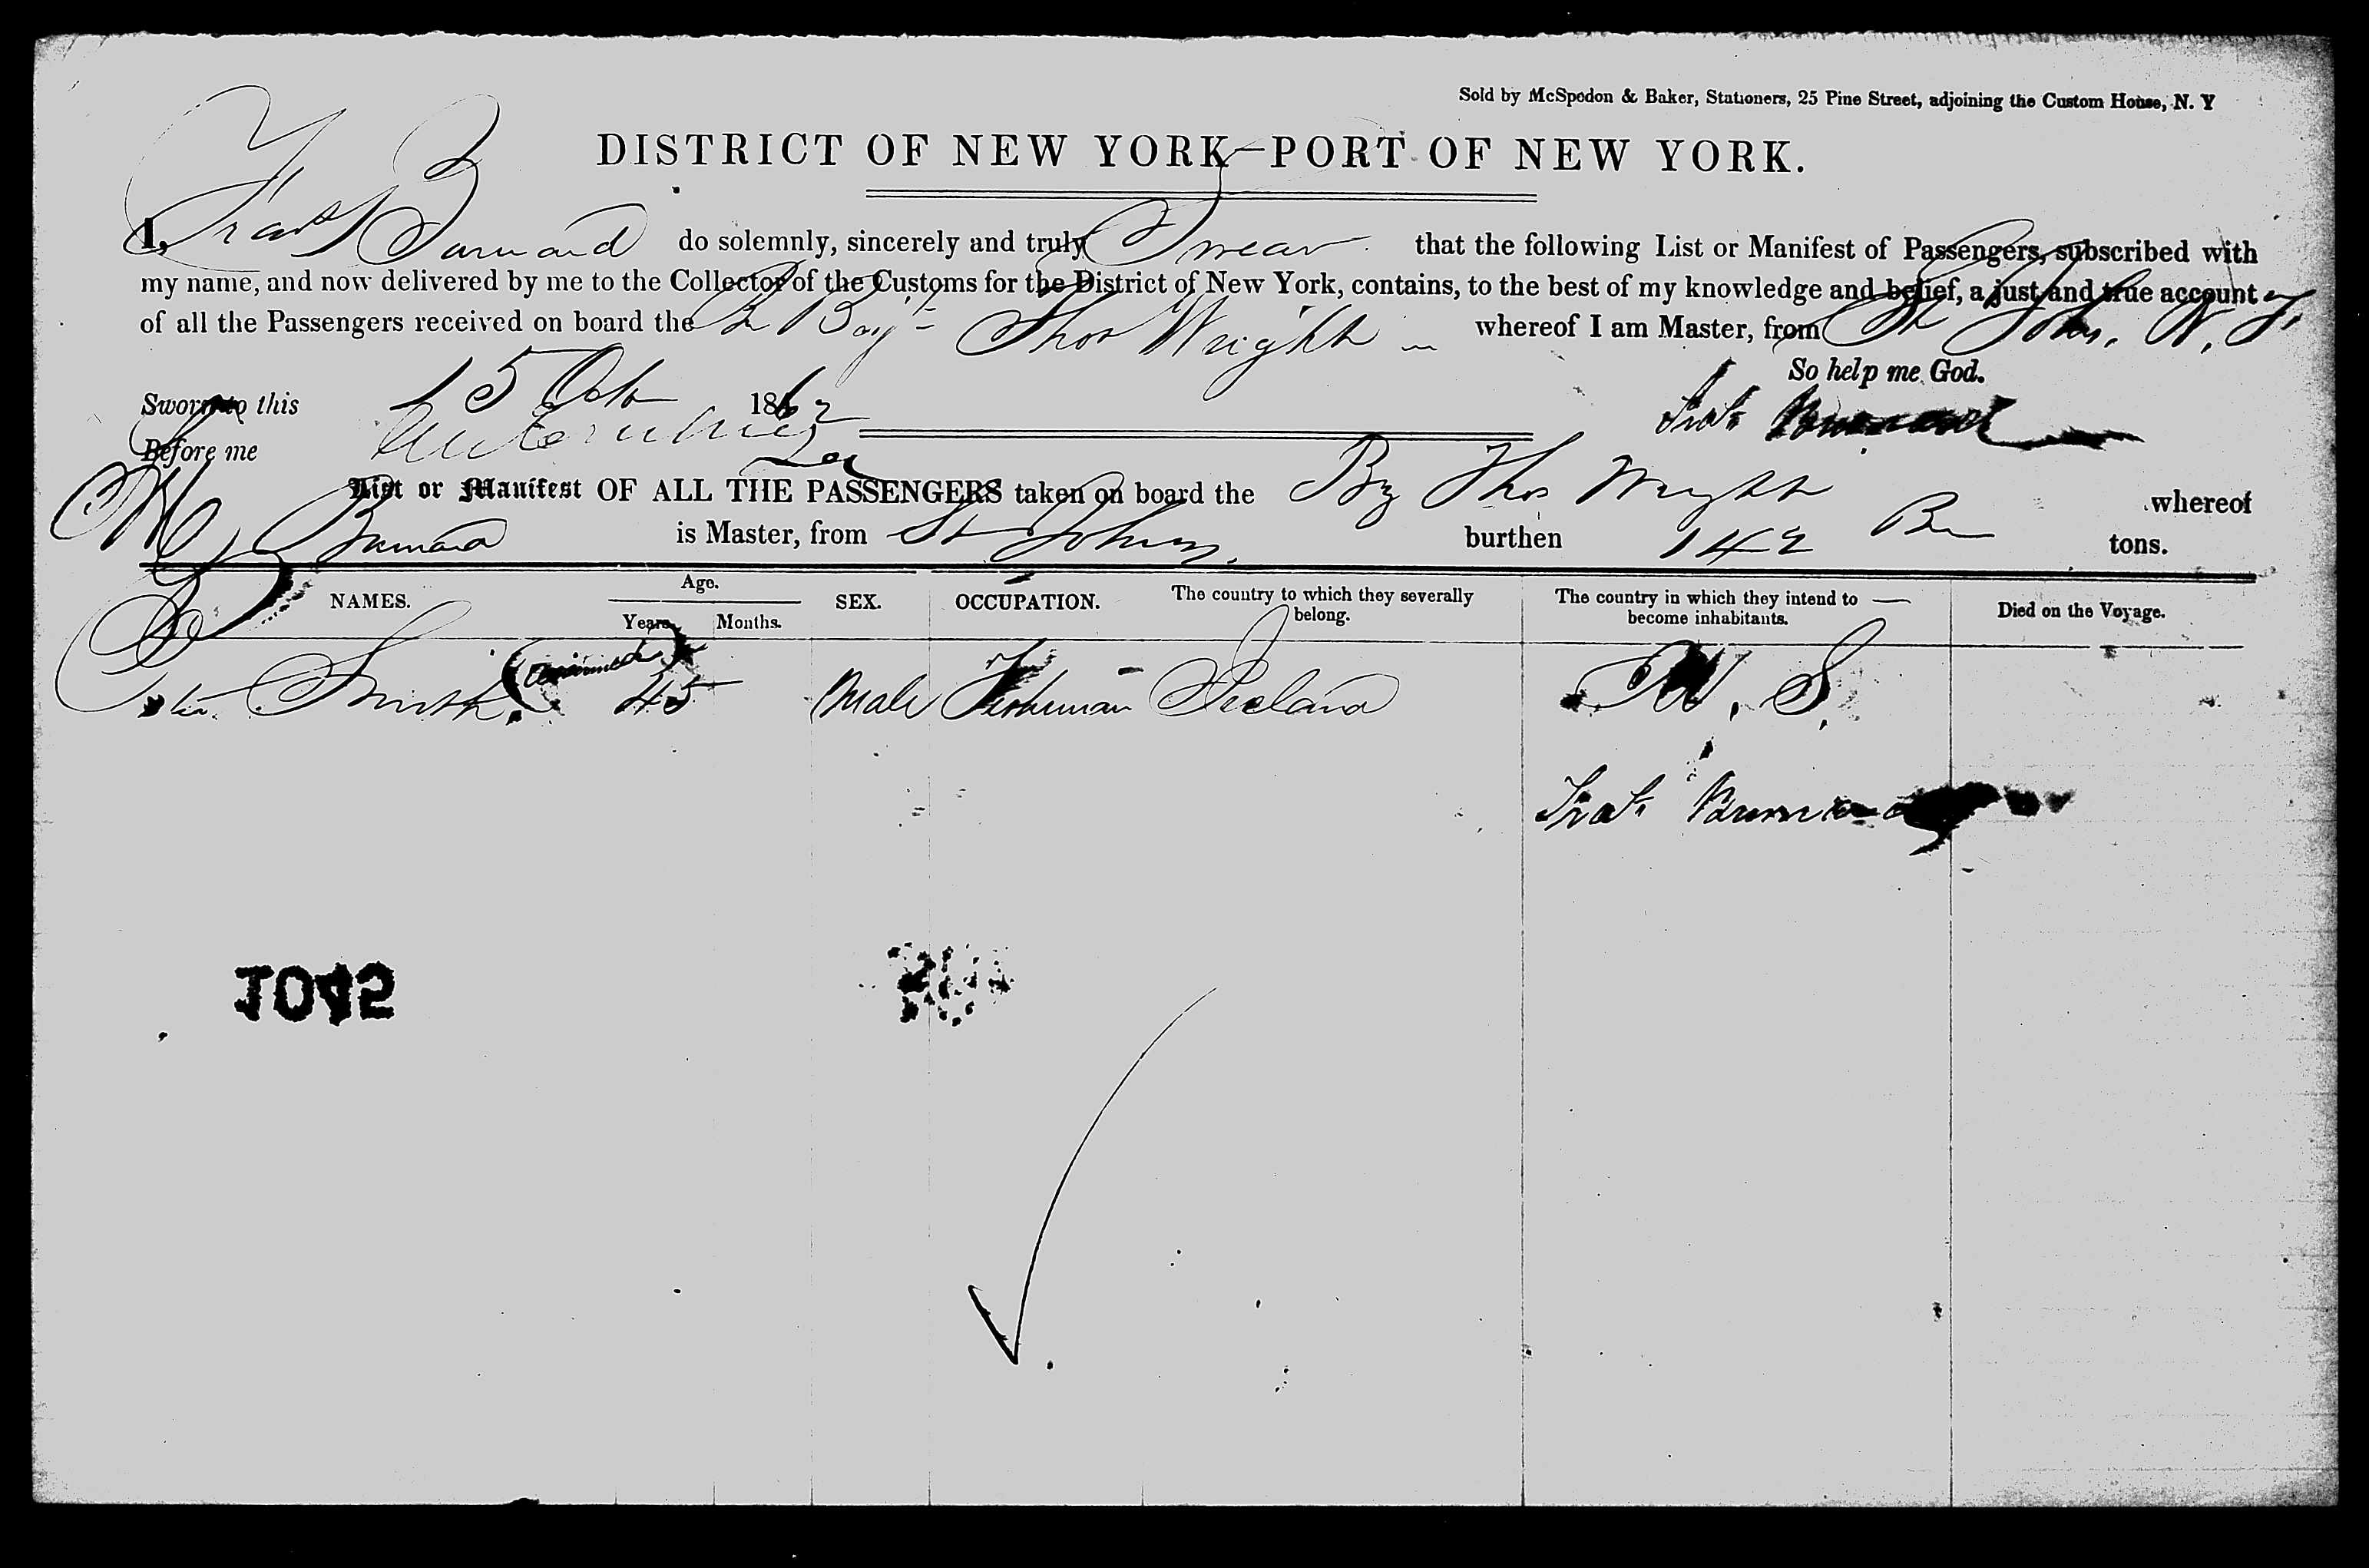 Sold by McSpedon & Baker, Stationers, 25 Pine Street, adjoining the Custom House, N. Y
DISTRICT OF NEW YORK—PORT OF NEW YORK.
I, do solemnly, sincerely and truly Swear that the following List or Manifest of Passengers, subscribed with
my name, and now delivered by me to the Collector of the Customs for the District of New York, contains, to the best of my knowledge and belief, a just and true account
of all the Passengers received on board the Thos Wright whereof I am Master, from St Johns, N.
So help me God.
Sworn to this 15 Oct 1862
Before me
List or Manifest OF ALL THE PASSENGERS taken on board the Thos Wright whereof
is Master, from St Johns. burthen 142 tons.
NAMES. Age. Years. Months. SEX. OCCUPATION. The country to which they severally belong. The country in which they intend to become inhabitants. Died on the Voyage.
Smith 45 Male Fisherman Ireland S.